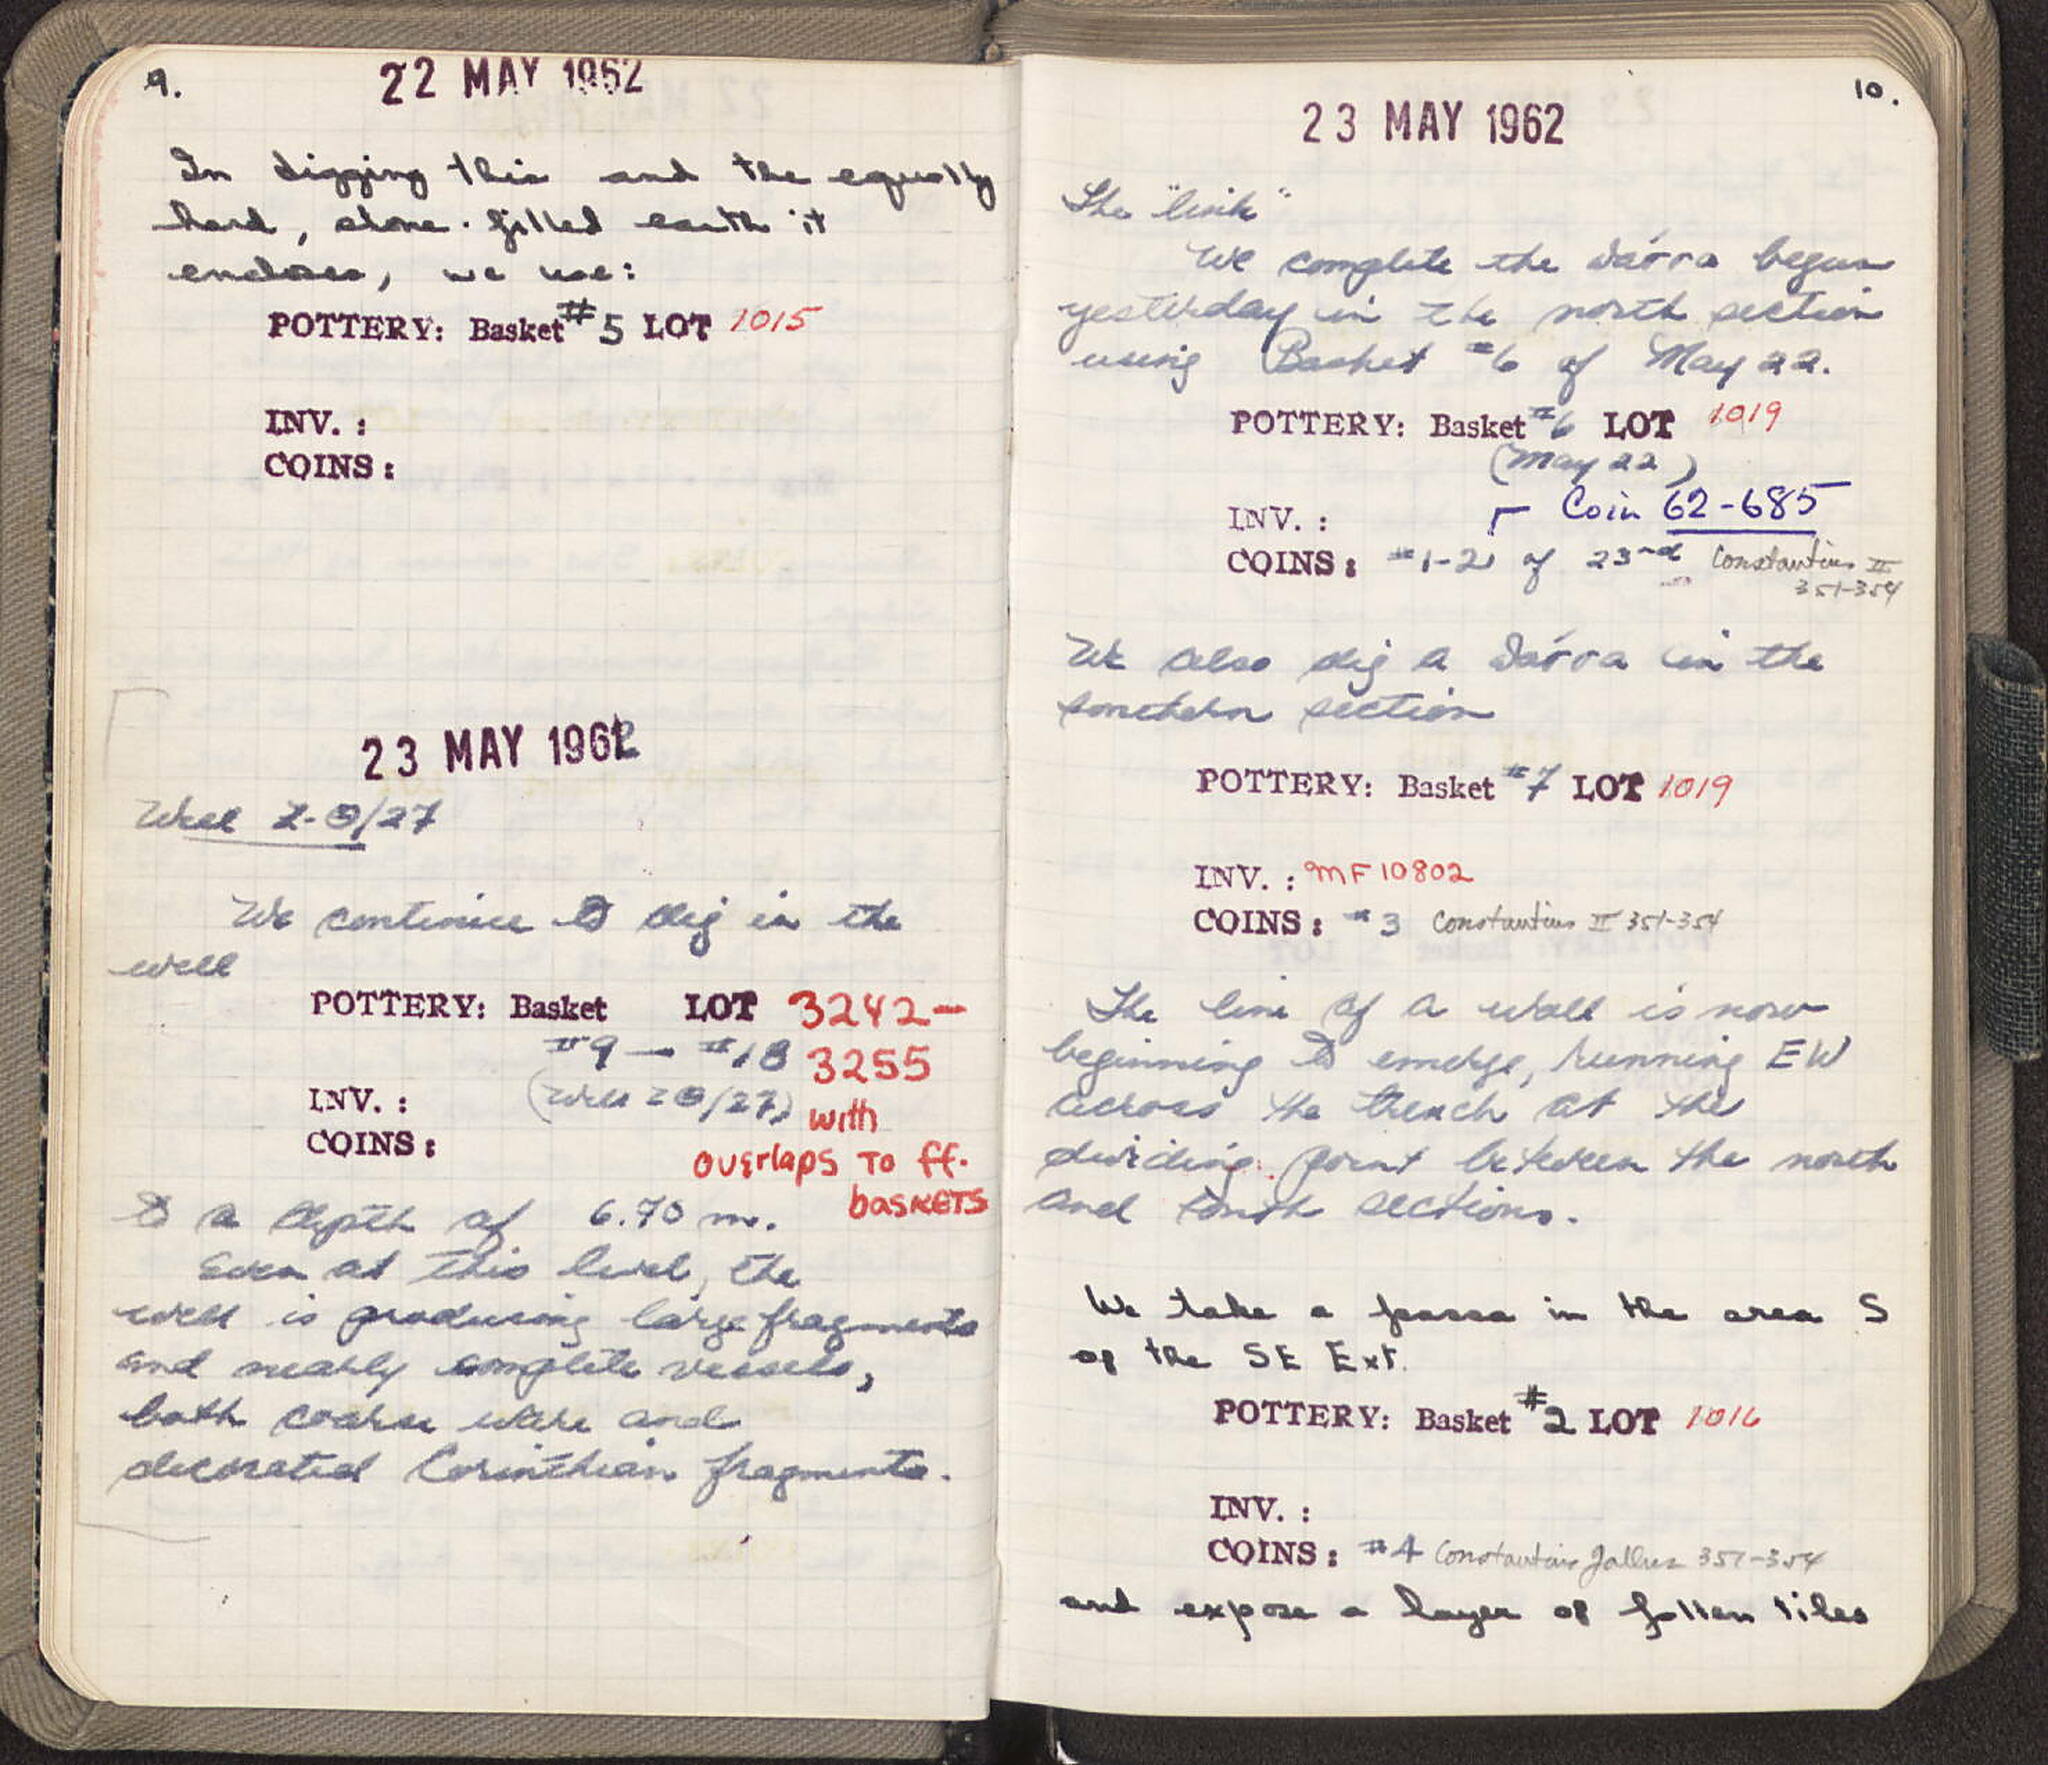 9.
22 MAY 1962
In digging this and the equally
hard, stone-filled earth it
encloses, we use:
POTTERY: Basket #5 LOT 1015
INV.:
COINS:
23 MAY 1962
Well Z-Θ/27
We continue to dig in the
well
POTTERY: Basket LOT 3242-
#9 — #18 3255
INV.: (Well Z Θ/27) with
COINS: overlaps to ff.
baskets
to a depth of 6.70 m.
Even at this level, the
well is producing large fragments
and nearly complete vessels,
both coarse ware and
decorated Corinthian fragments.
10.
23 MAY 1962
The "link"
We complete the σάρρα begun
yesterday in the north section
using Basket #6 of May 22.
POTTERY: Basket #6 LOT 1019
(May 22)
INV.: Coin 62-685
COINS: #1-2 of 23rd Constantius II
351-354
We also dig a σάρρα in the
southern section
POTTERY: Basket #7 LOT 1019
INV.: MF 10802
COINS: #3 Constantius II 351-354
The line of a wall is now
beginning to emerge, running EW
across the trench at the
dividing point between the north
and south sections.
We take a passa in the area S
of the SE Ext.
POTTERY: Basket #2 LOT 1016
INV.:
COINS: #4 Constantius Gallus 351-354
and expose a layer of fallen tiles